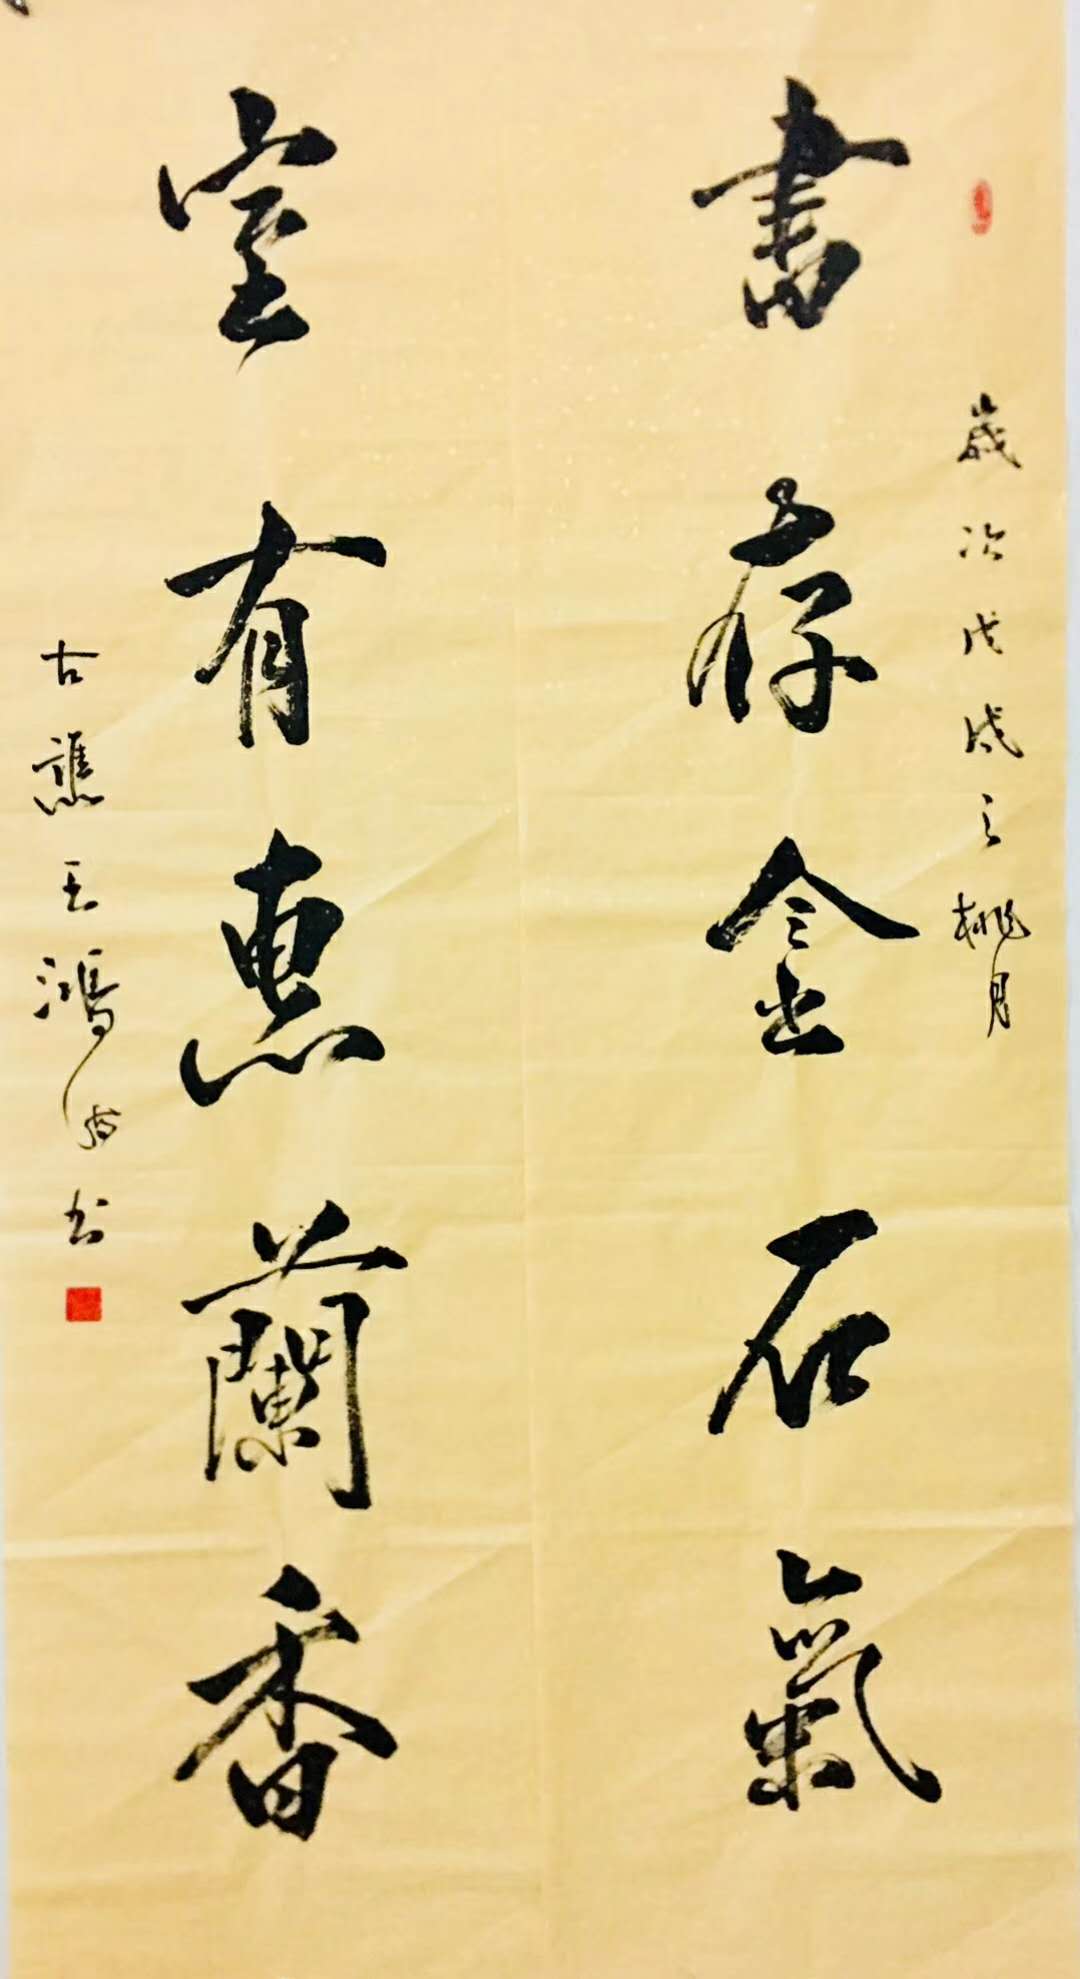 歲次戊戌之桃月
書存金石氣
室有惠蘭香
古譙王鴻
书